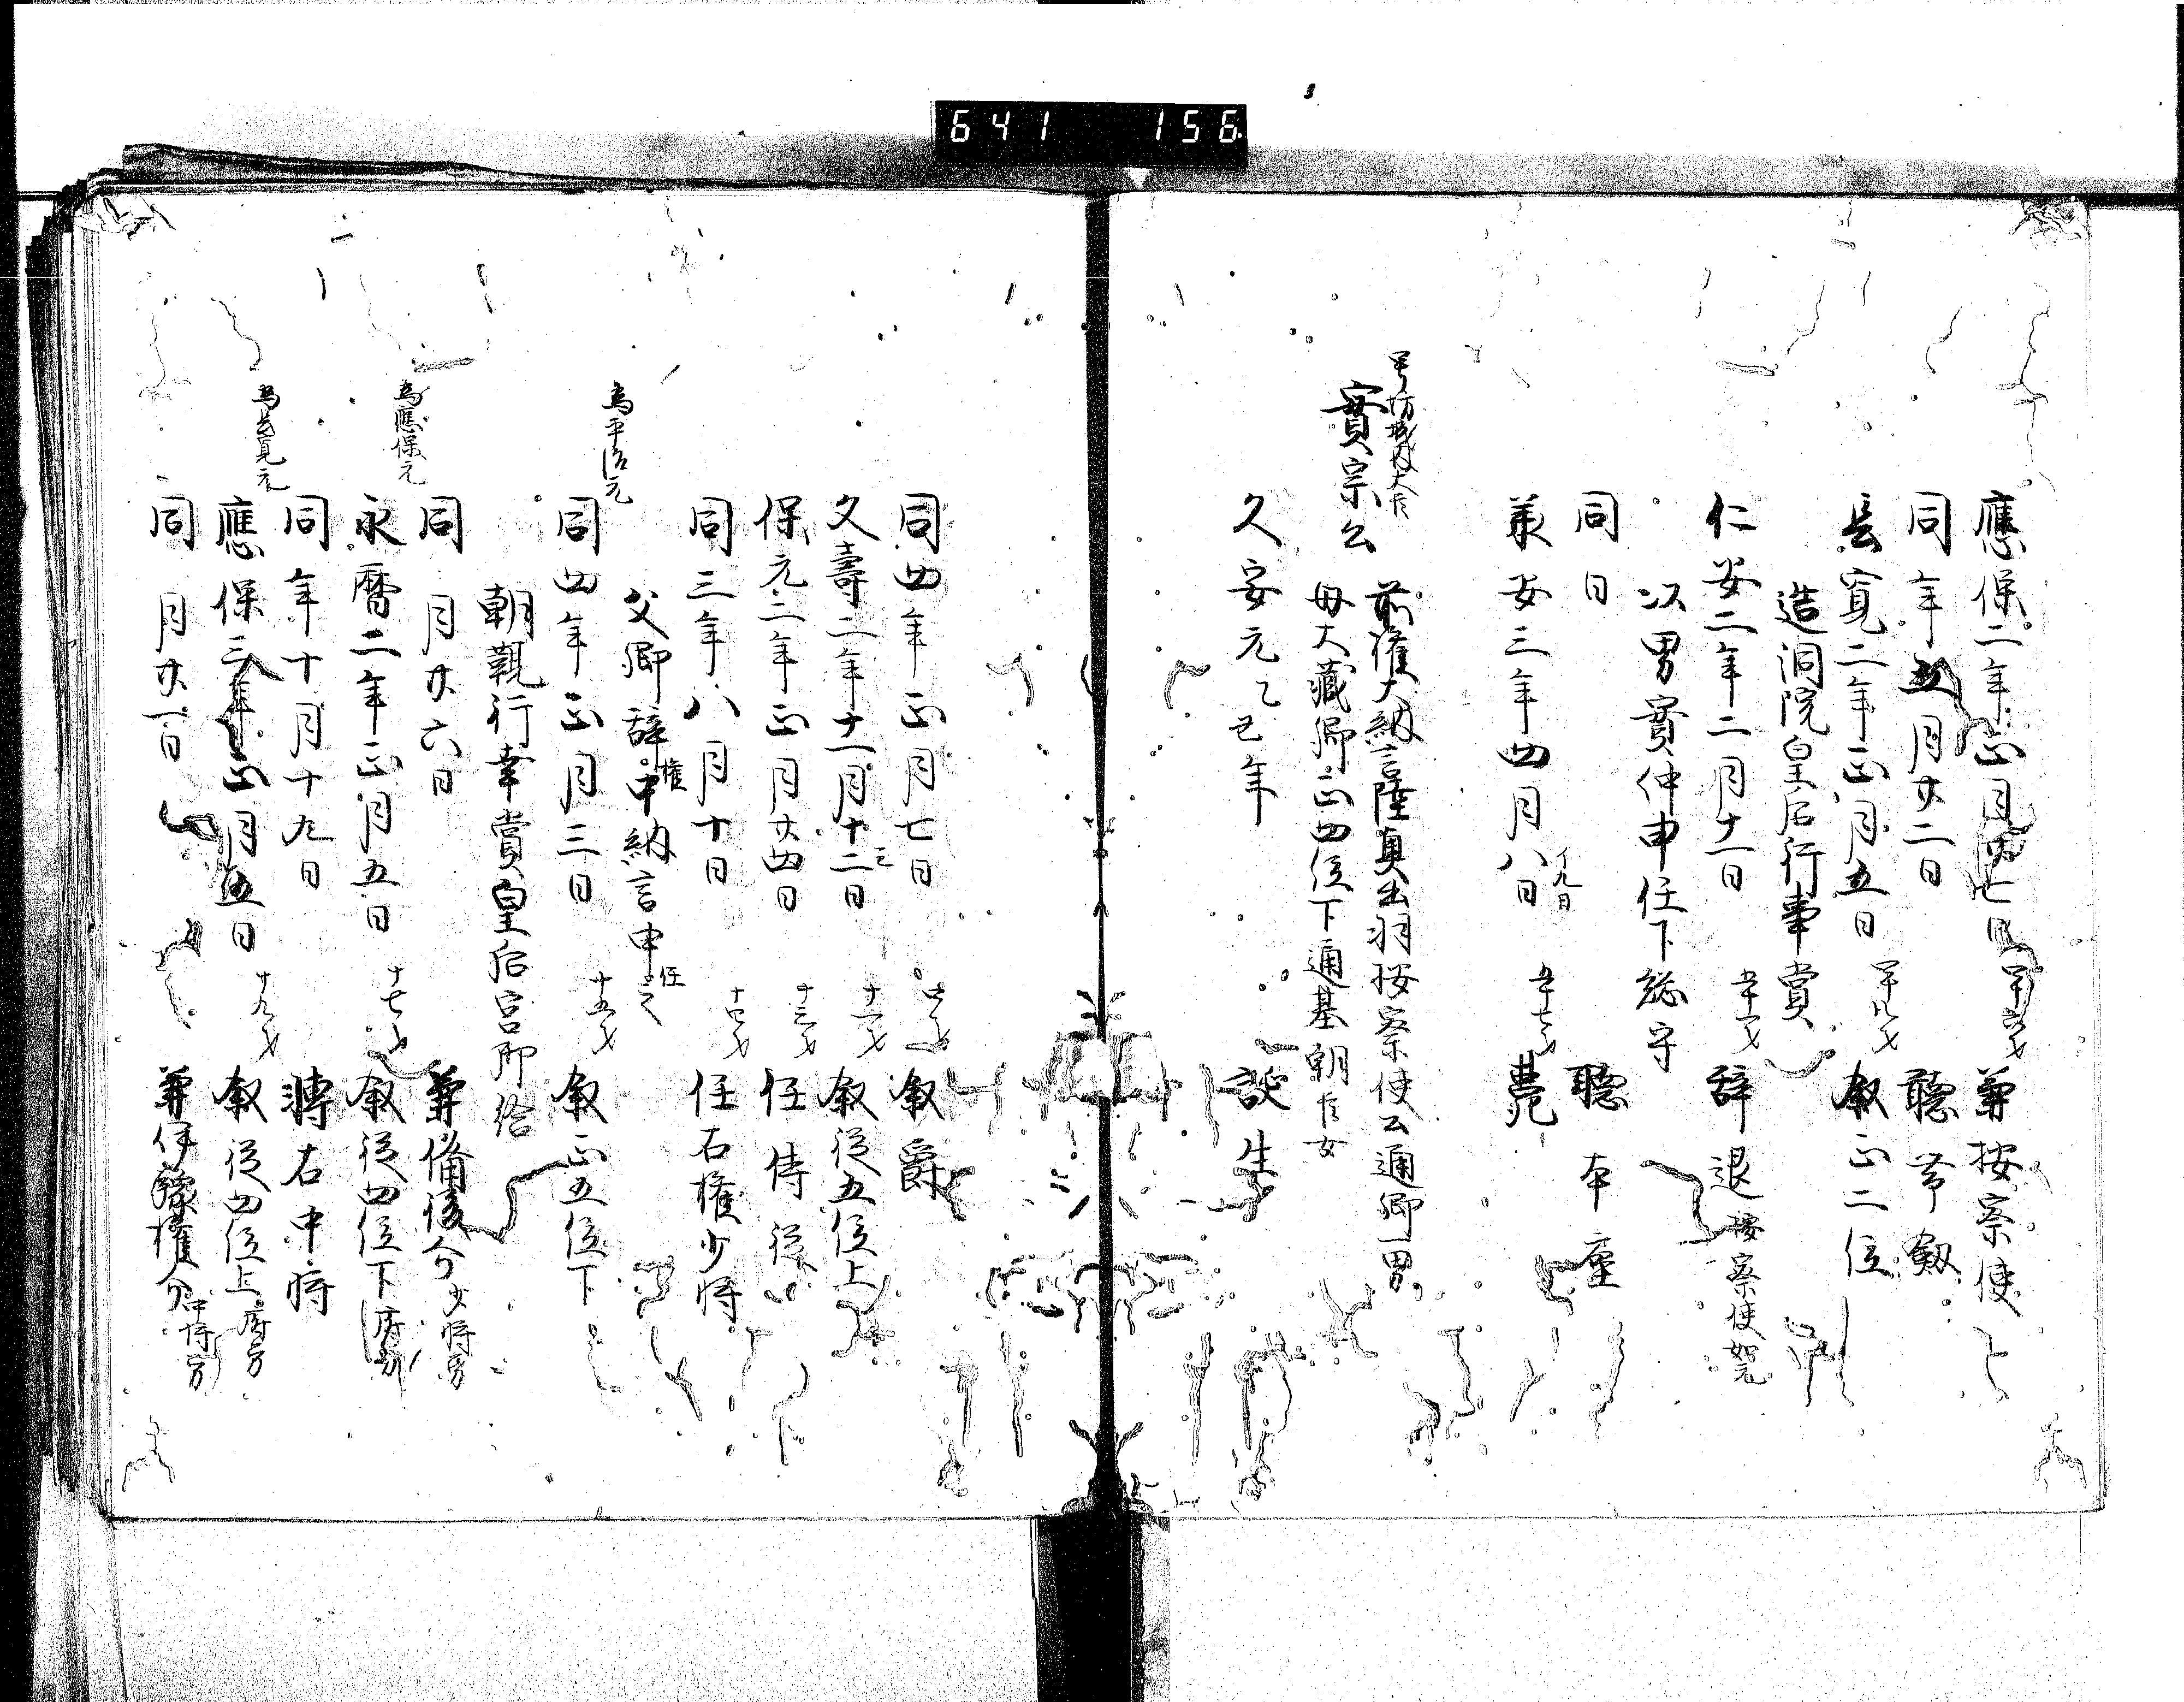 641 156
應保二年正月廿七日 兼按察使
同年五月廿二日 聽帶劔
長寬二年正月五日 四十八才 叙正二位
造洞院皇后行事賞
仁安二年二月十一日 五十一才 辞退按察使
以男實仲申任下総守
同日 聽本座
承安三年四月八日 イ九日 五十七才 薨
号坊城内大臣
實宗公
前権大納言陸奥出羽按察使公通卿一男
母大蔵卿正四位下通基朝臣女
久安元乙丑年 誕生
同四年正月七日 四才 叙爵
久壽二年十一月十二日 十一才 叙従五位上
保元二年正月廿四日 十三才 任侍従
同三年八月十日 十四才 任右権少将
父卿辞権中納言申任之
為平治元
同四年正月三日 十五才 叙正五位下
朝覲行幸賞皇后宮御給
同月廿六日 兼備後介 少将労
為應保元
永暦二年正月五日 十七才 叙従四位下 府労
同年十月十九日 轉右中将
為長寛元
應保三年正月五日 十九才 叙従四位上 府労
同月廿一日 兼伊豫権介 中将労